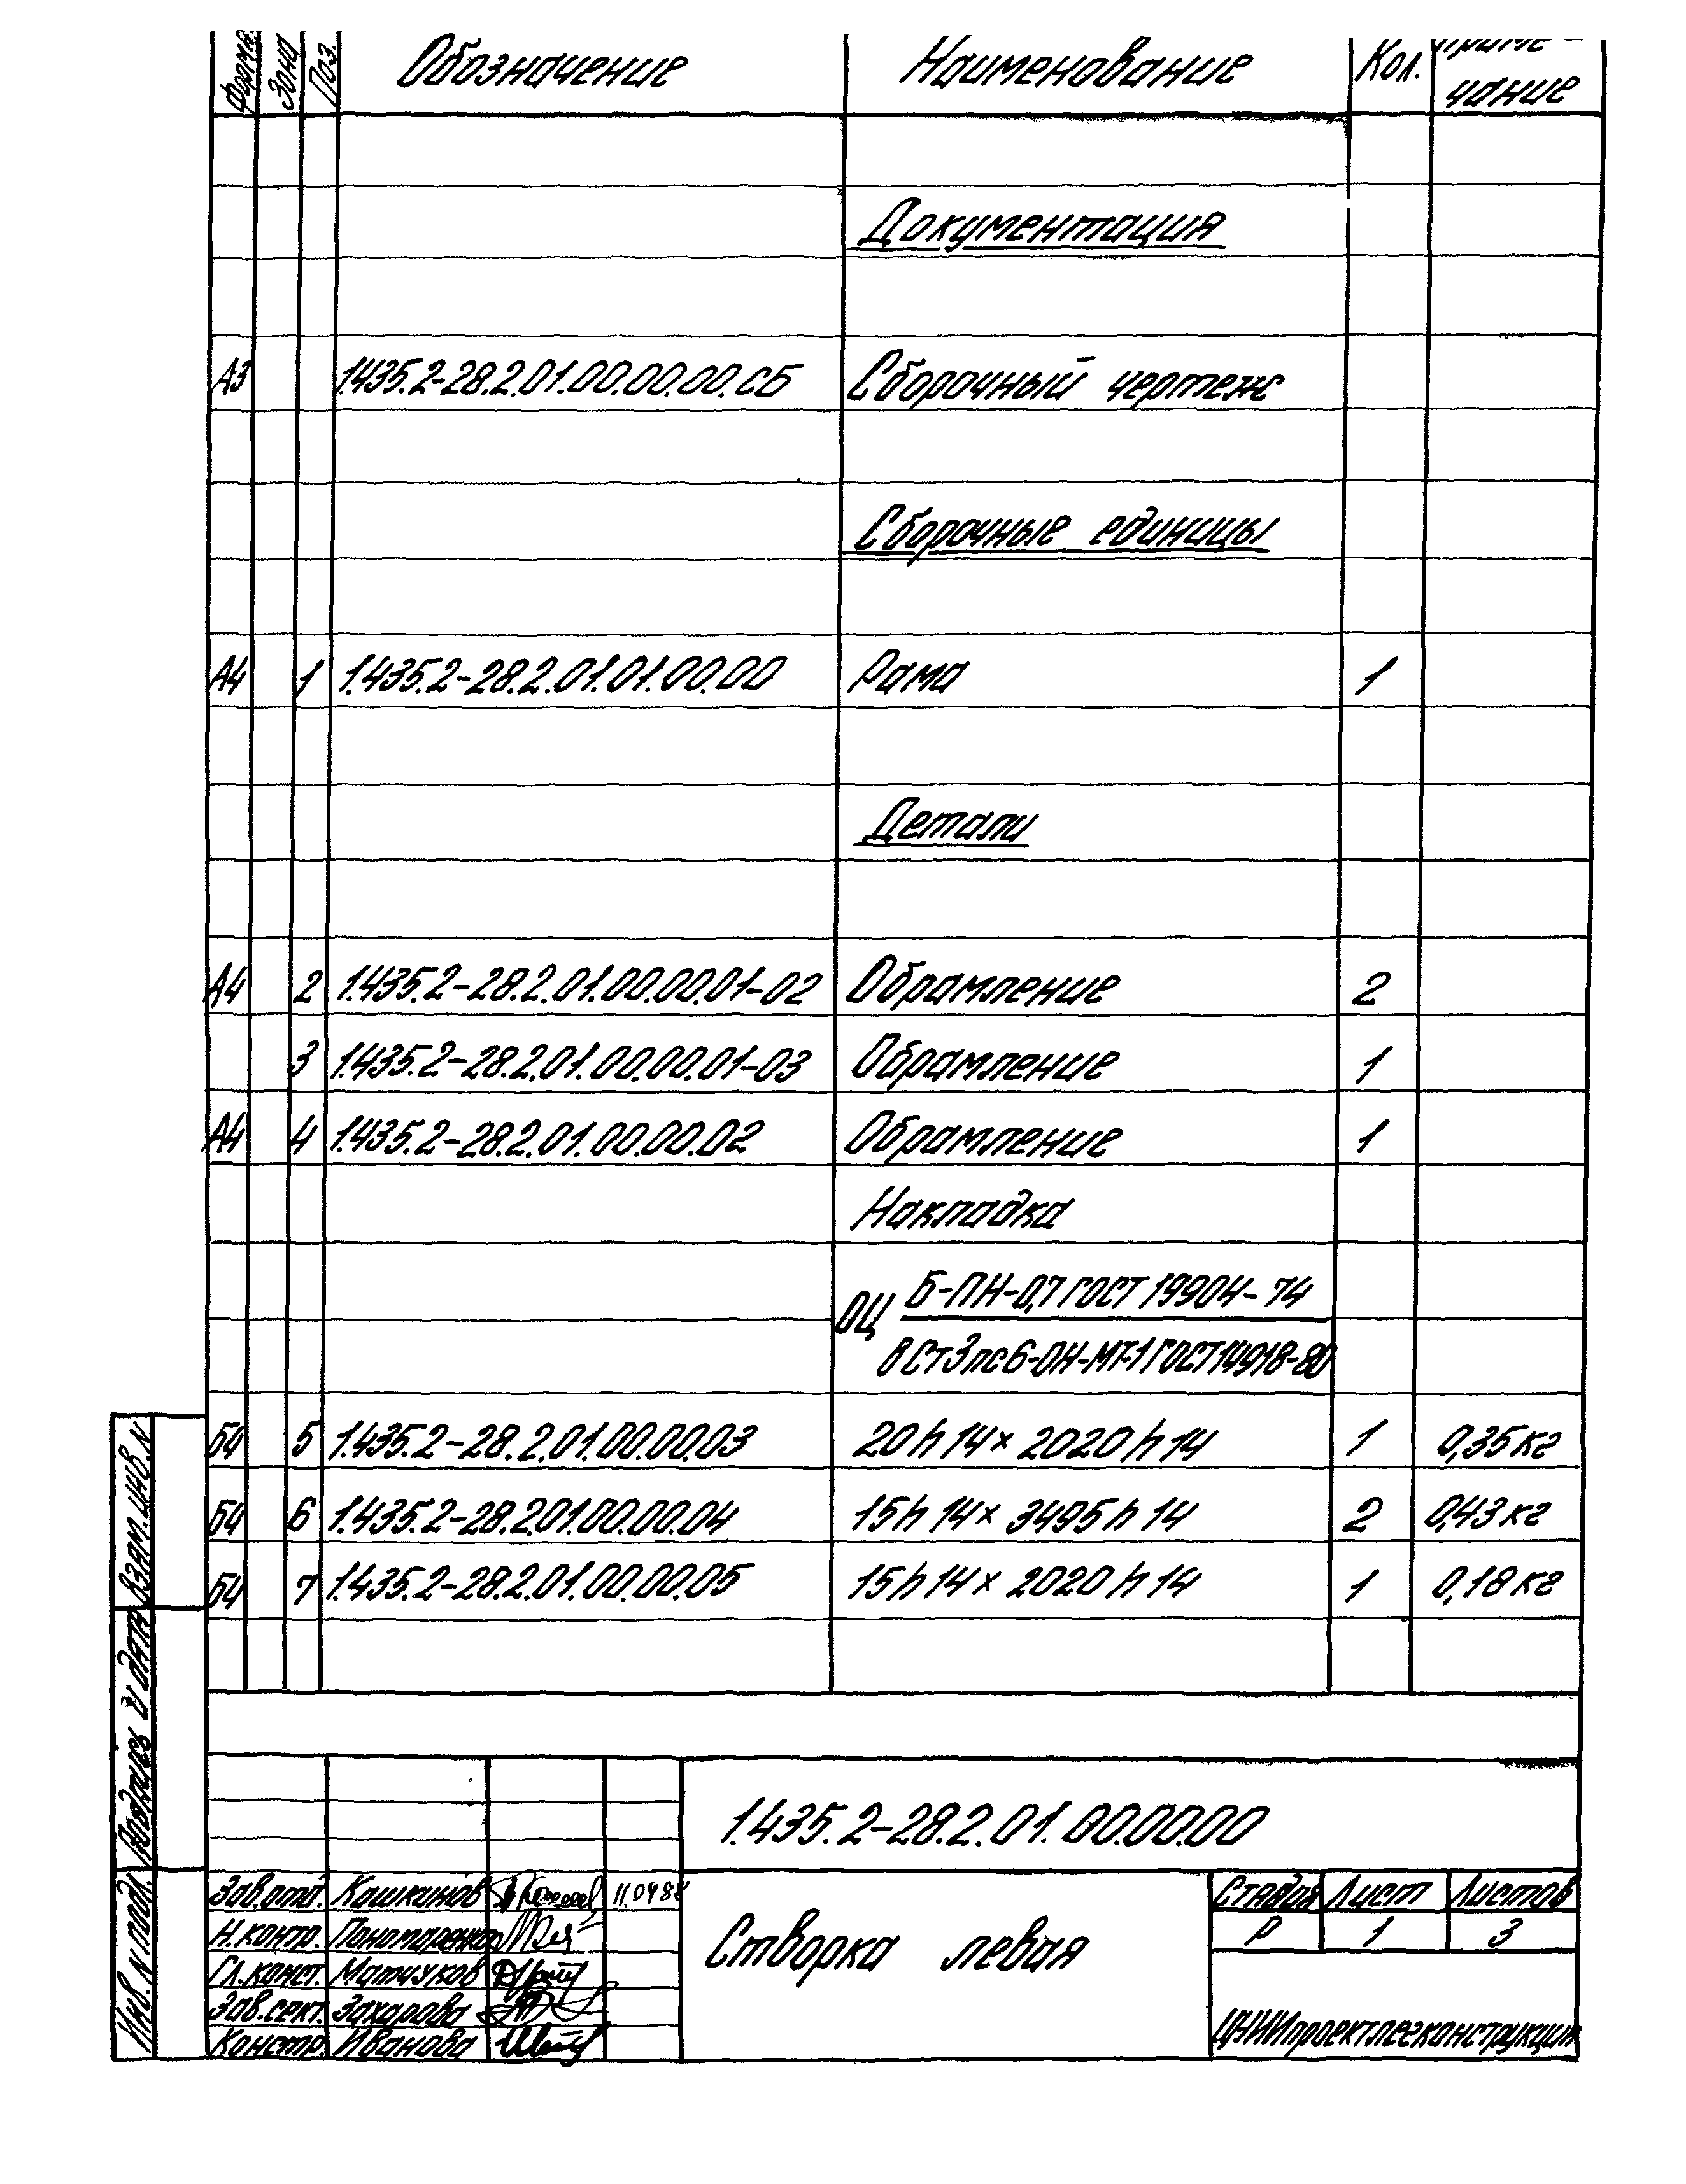 Форма. Зона Поз. Обозначение Наименование Кол. Приме-
чание
Документация
А3 1.435.2-28.2.01.00.00.00.СБ Сборочный чертеж
Сборочные единицы
А4 1 1.435.2-28.2.01.01.00.00 Рама 1
Детали
А4 2 1.435.2-28.2.01.00.00.01-02 Обрамление 2
3 1.435.2-28.2.01.00.00.01-03 Обрамление 1
А4 4 1.435.2-28.2.01.00.00.02 Обрамление 1
Накладка
ОЦ Б-ПН-0,7 ГОСТ 19904-74
ВСт3пс6-ОН-МТ-1 ГОСТ 14918-80
Б4 5 1.435.2-28.2.01.00.00.03 20h14× 2020h14 1 0,35кг
Б4 6 1.435.2-28.2.01.00.00.04 15h14× 3495h14 2 0,43кг
Б4 7 1.435.2-28.2.01.00.00.05 15h14× 2020h14 1 0,18кг
Взам.инв.N
Подпись и дата
Инв.N подл.
1.435.2-28.2.01.00.00.00
Зав.отд. Кашкинов 11.04.88
Н.контр. Пономаренко
Гл.конст. Матчуков
Зав.сект. Захарова
Констр. Иванова
Створка левая
Стадия Лист Листов
Р 1 3
ЦНИИпроектлегконструкция